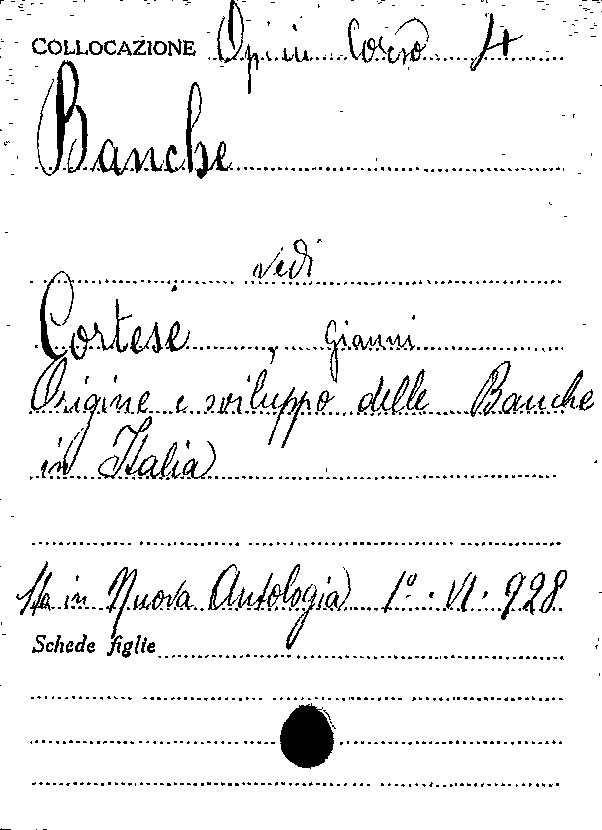 COLLOCAZIONE Opin Corso 4
Banche
vedi
Cortese, Gianni
Origine e sviluppo delle Banche
in Italia
Sta in Nuova Antologia 1º. VI. 928
Schede figlie